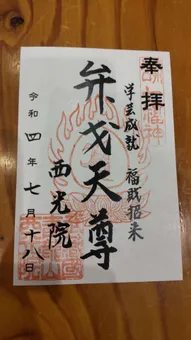 奉拝
学芸成就
福財招来
弁戈天尊
西光院
令和四年七月十八日